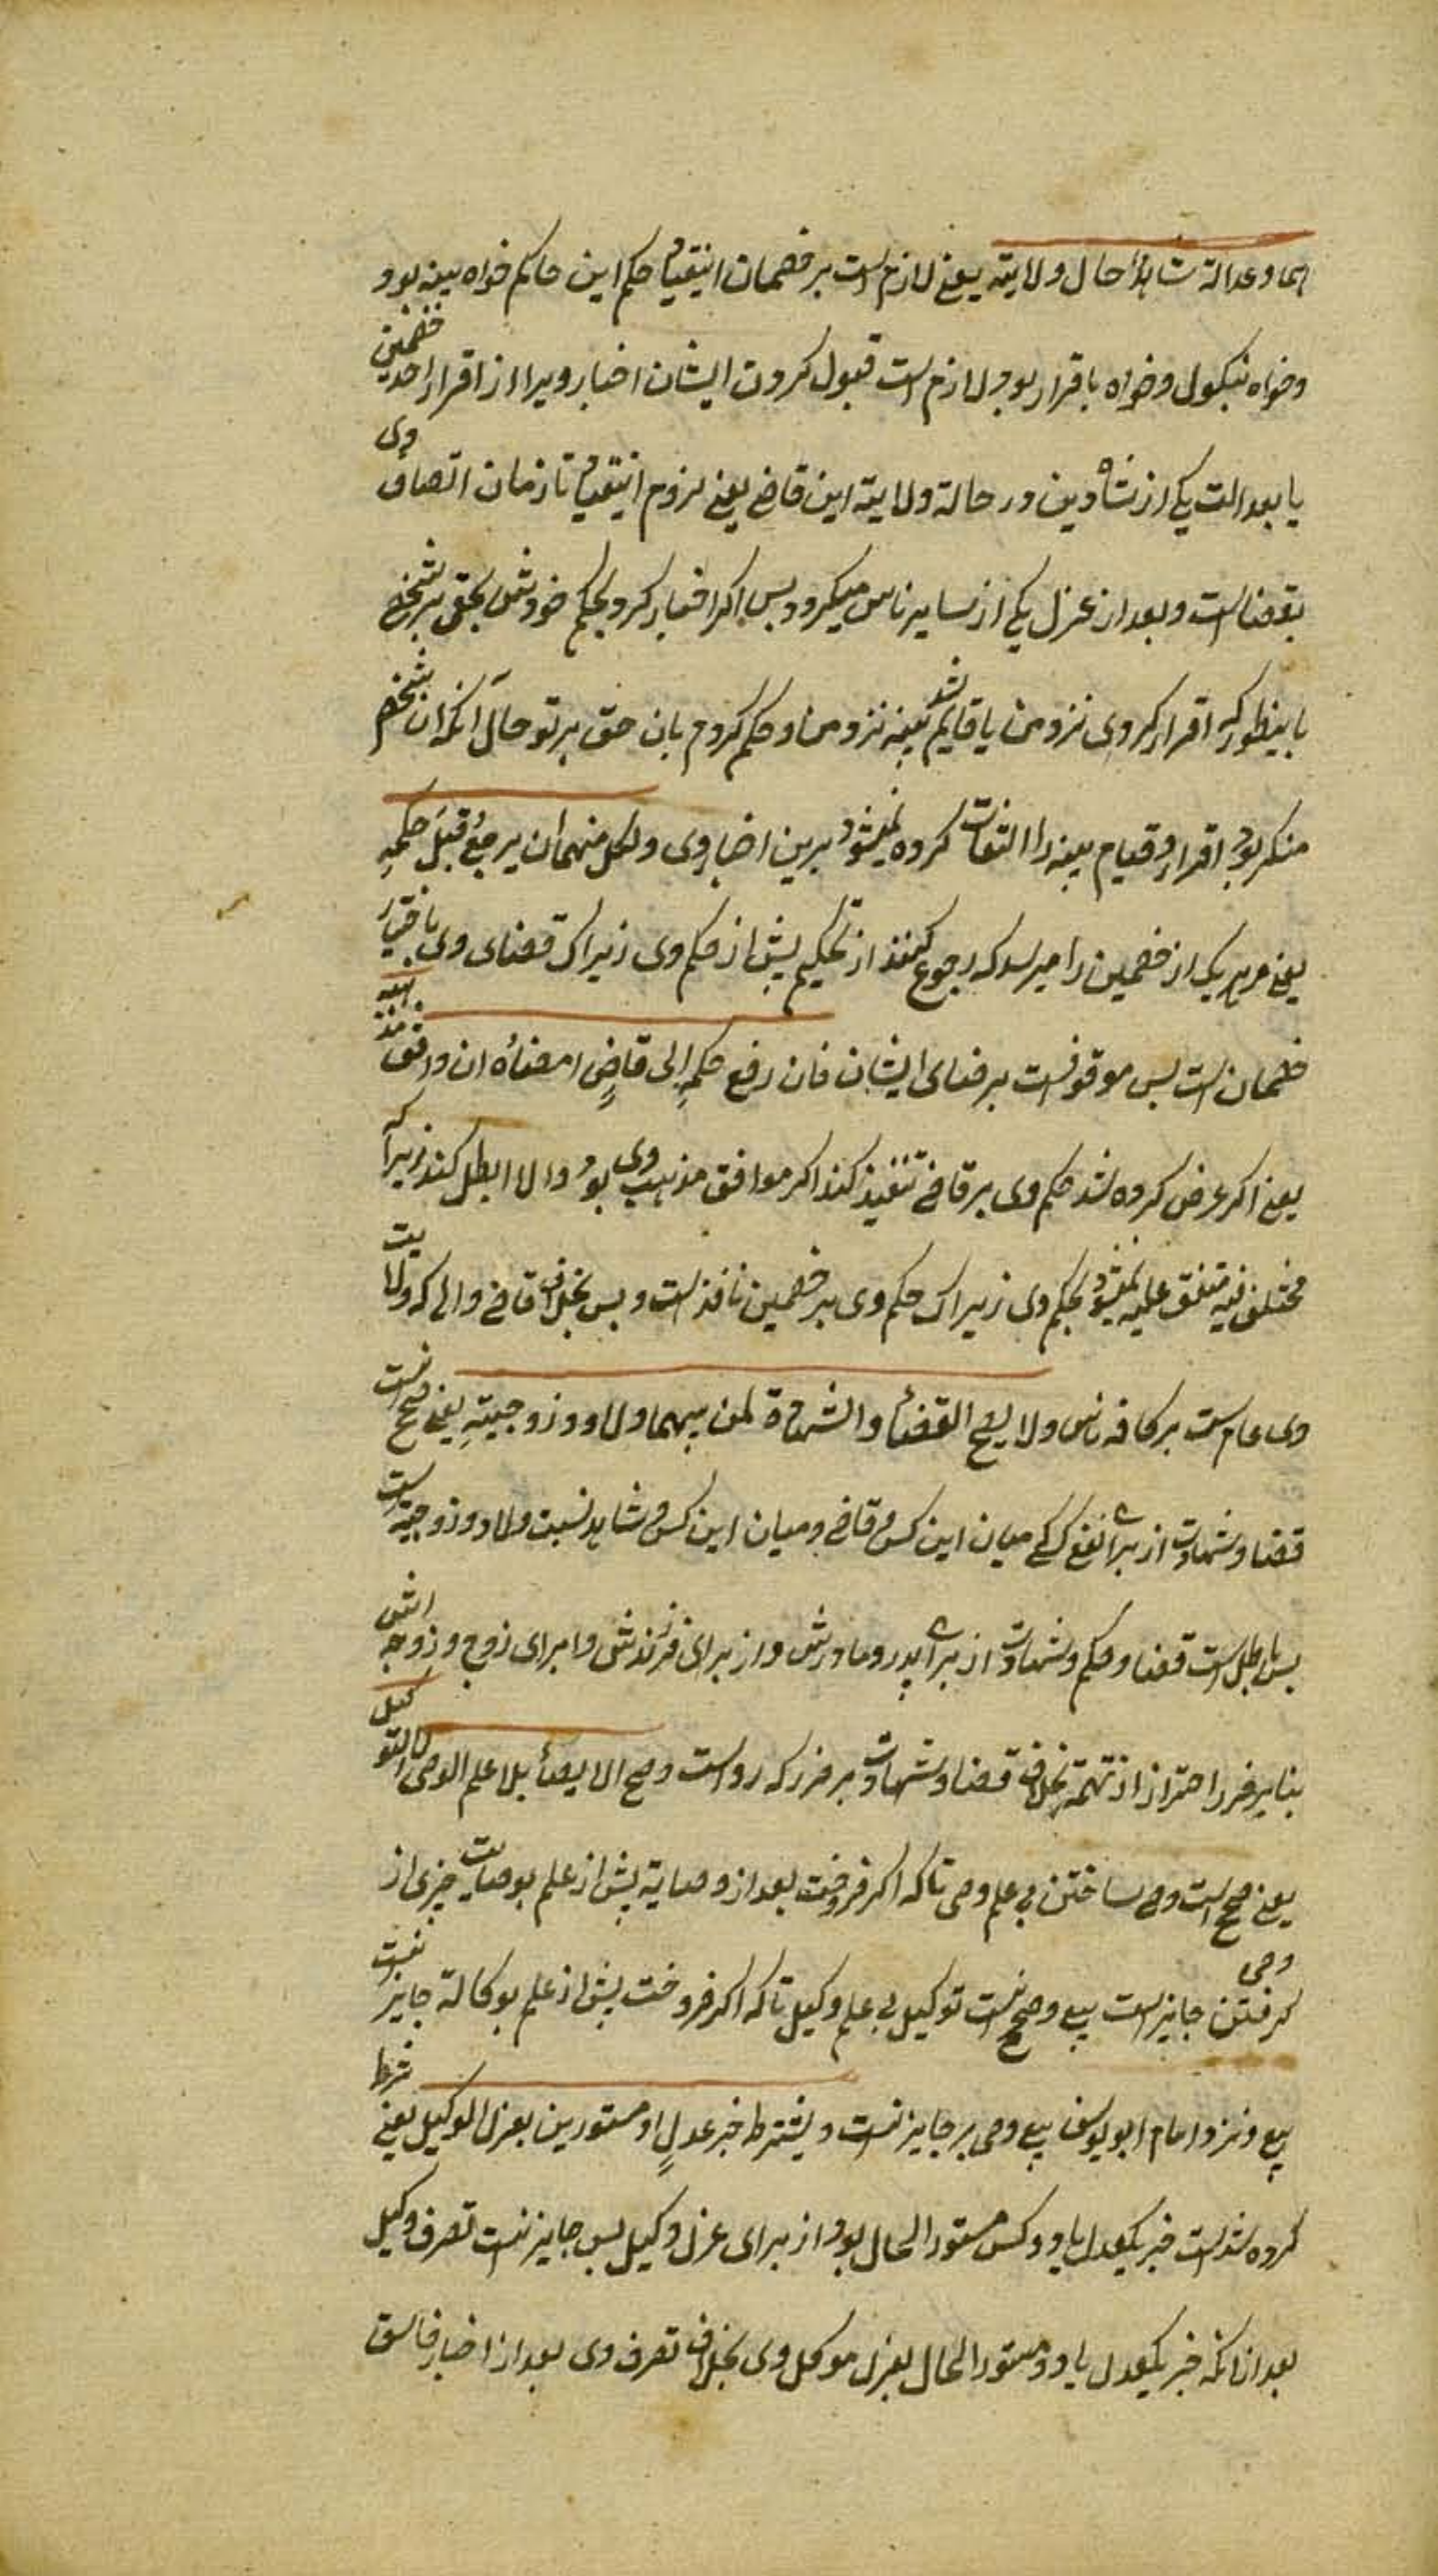 هما وعدالة شاهد حال ولایته یعنی لازم است بر خصمان انقیاد حکم این حاکم خواه ببینه بود و
وخواه بنکول وخواه باقرار بود لازم است قبول کردن ایشان اخبار ویرا از اقرار احد خصمین
یا بعدالت یکی از شاهدین در حالة ولایته این قاضی یعنی لزوم انقیاد تا زمان اتصاف وی
بقضا است وبعد از عزل یکی از سایر ناس میکردد پس اکر اخبار کرد بحکم خودش بحق بر شخصی
باینطور که اقرار کردی نزد من یا قایم شد بینه نزد من وحکم کردم بان حق بر تو حال آنکه ان شخص
منکر بود اقرار وقیام بینه را التفات کرده نمیشود برین اخبار وی ولکل منهما ان یرجع قبل حکمه
یعنی مر هر یک از خصمین را میرسد که رجوع کنند از تحکیم پیش از حکم وی زیراک قضای وی باختیار
خصمان است پس موقوفست برضای ایشان فان رفع حکمه الی قاض امضاه ان وافق مذهبه
یعنی اکر عرض کرده شد حکم وی بر قاضی تنفیذ کند اکر موافق مذهب وی بود والا ابطل کند زیرا که
مختلف فیه متفق علیه نمیشود بحکم وی زیراک حکم وی بر خصمین نافذ است وبس بخلاف قاضی والی که ولایت
وی عام است بر کافه ناس ولا یصح القضاء والشهادة لمن بینهما ولاد وزوجیة یعنی صحیح نیست
قضا وشهادت از برای نفع کسی که میان این کس وقاضی ومیان این کس وشاهد نسبت ولاد وزوجیة است
پس باطل است قضا وحکم وشهادت از برای پدر ومادرش واز برای فرزندش وا برای زوج وزوجه اش
بنابر فرر احتراز از تهمة بخلاف قضا وشهادت بر ضرر که رواست وصح الایصاء بلا علم الوصی لا التوکیل
یعنی صحیح است وصی ساختن بی علم وصی تا که اکر فروخت بعد از وصایة پیش از علم بوصایت چیزی از
کرفتن وصی جایز است بیع وصحیح نیست توکیل بی علم وکیل تا که اکر فروخت پیش از علم بوکالة جایز نیست
بیع ونزد امام ابو یوسف بیع وصی بر جایز نیست ویشترط خبر عدل او مستورین بعزل الوکیل یعنی شرط
کرده شد است خبر یکعدل یا دو کس مستور الحال بود از برای عزل وکیل پس جایز نیست تصرف وکیل
بعد از انکه خبر یکعدل یا دو مستور الحال بعزل موکل وی بخلاف تصرف وی بعد از اخبار فاسق